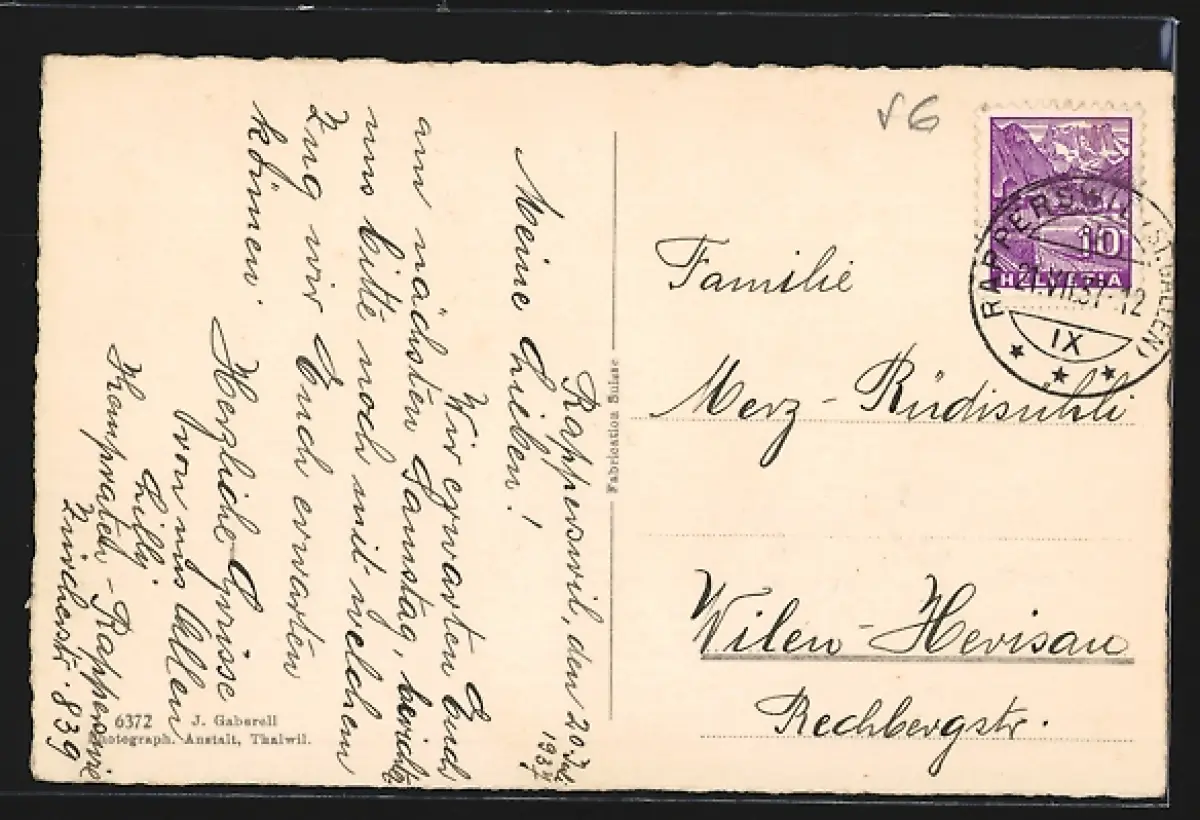 Rapperswil, den 20. Jul.
1937
Meine Lieben!
Wir erwarten Euch
am nächsten Samstag, berichtet
uns bitte noch mit welchem
Zug wir Euch erwarten
können.
Herzliche Grüsse
von uns Allen
Lilly.
Kempraten-Rapperswil
Zürcherstr. 839
6372 J. Gaberell
Photograph. Anstalt, Thalwil.
Fabrication Suisse
56
10
HELVETIA
RAPPERSWIL (ST. GALLEN)
21.VII.37-12
IX
Familie
Merz-Rüdisühli
Wilen-Herisau
Rechbergstr.